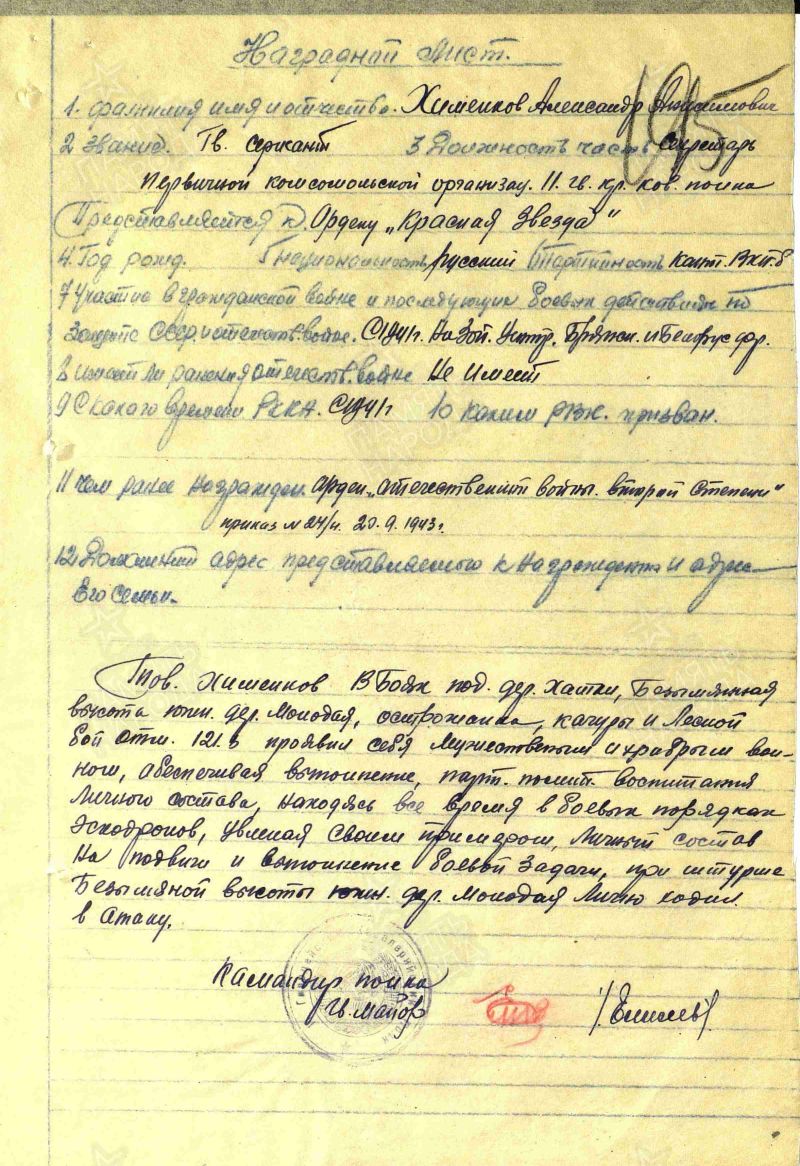 Наградной лист.
195
1. фамилия имя и отчество. Хименков Александр
2 Звание. Гв. сержант 3 Должность часть Секретарь
первичной комсомольской организац. 11. гв. кр. кав. полка
Представляется к Ордену „Красная Звезда"
4. Год рожд. 5 национальность русский Партийность кант. ВКП.б
7 Участие в гражданской войне и последующих боевых действиях по
защите СССР и отечеств. войне. С 1941 г. На Зап. Центр. Брянск. и Белорус фр.
8 имеет ли ранения отечеств. войне Не имеет
9 С какого времени РККА. С 1941 г 10 каким РВК. призван.
11 чем ранее награжден. орден „отечественной войны. второй степени"
приказ № 24/н. 20.9.1943 г.
12. Домашний адрес представляемого к награждению и адрес
Его семьи.
Тов. Хименков В Боях под. дер. Хатки, Безымянная
высота южн. дер. Молодая, качуры и Лесной
бой отм. 121.3 проявил себя мужественым и храбрым вои-
ном, обеспечивая выполнение, парт. полит. воспитания
личного состава, находясь все время в боевых порядках
эскодронов, увлекая своим примером, личный состав
на подвиги и выполнение боевой задачи, при штурме
Безымяной высоты южн. дер. Молодая лично ходил
в атаку.
Камандир полка
гв. майор